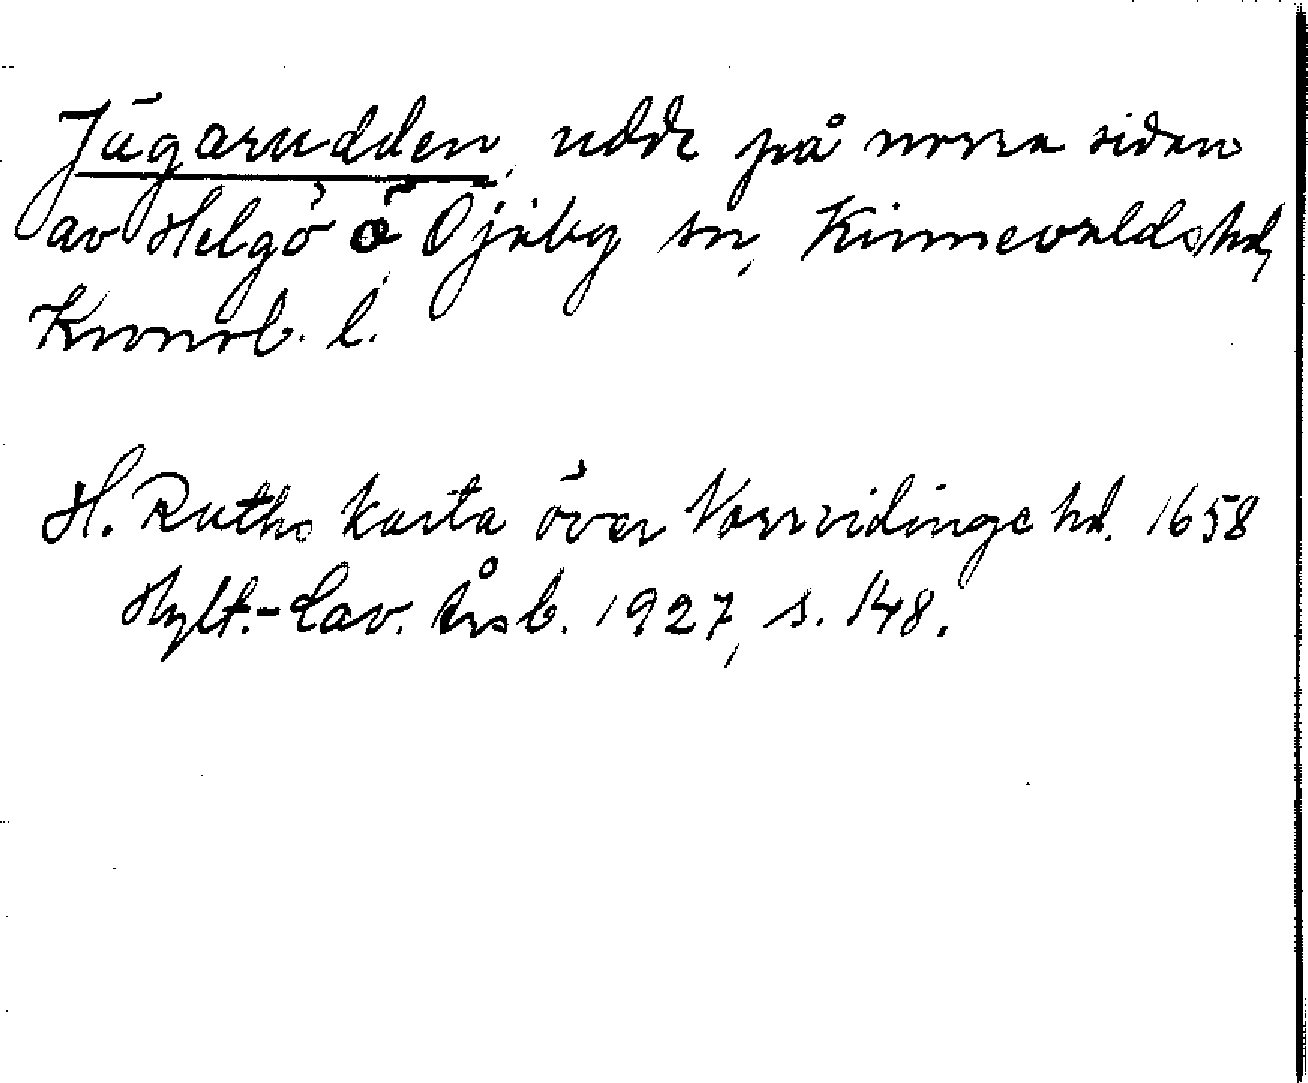 Jägarudden, udde på norra sidan
av Helgö ö Öjaby sn, Kinnevalds hd,
Kronob. l.
H. Ruths karta över Norrvidinge hd. 1658
Hylt.-Cav. årsb. 1927, s. 148.